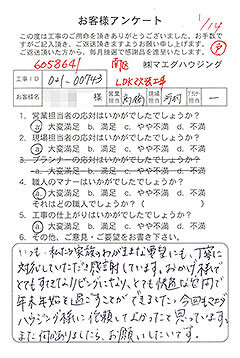 お客様アンケート
1/14
この度は工事のご用命を頂きありがとうございました。お手数で
すがご記入頂き、ご返送頂きますようお願い申し上げます。
ご返送頂いた方から、毎月抽選で感謝品を進呈いたします。
6058641
㈱マエダハウジング
工事ID
021-00743
LDK改装工事
お客様名
様
営業担当
現場担当
プランナー担当
1. 営業担当者の応対はいかがでしたでしょうか？
a. 大変満足 b. 満足 c. やや不満 d. 不満
2. 現場担当者の応対はいかがでしたでしょうか？
a. 大変満足 b. 満足 c. やや不満 d. 不満
3. プランナーの応対はいかがでしたでしょうか？
a. 大変満足 b. 満足 c. やや不満 d. 不満
4. 職人のマナーはいかがでしたでしょうか？
a. 大変満足 b. 満足 c. やや不満 d. 不満
それはどの職人でしょうか（ ）
5. 工事の仕上がりはいかがでしたでしょうか？
a. 大変満足 b. 満足 c. やや不満 d. 不満
6. その他、ご意見・ご要望をお書き下さい。
いつも、私たち家族のわがままな要望にも、丁寧に
対応していただき感謝しています。おかげ様で
とてもすてきなリビングになり、とても快適な空間で
年末年始を過ごすことができました。今回もマエダ
ハウジング様に依頼してよかったと思っています。
また何かありましたら、お願いしたいです。